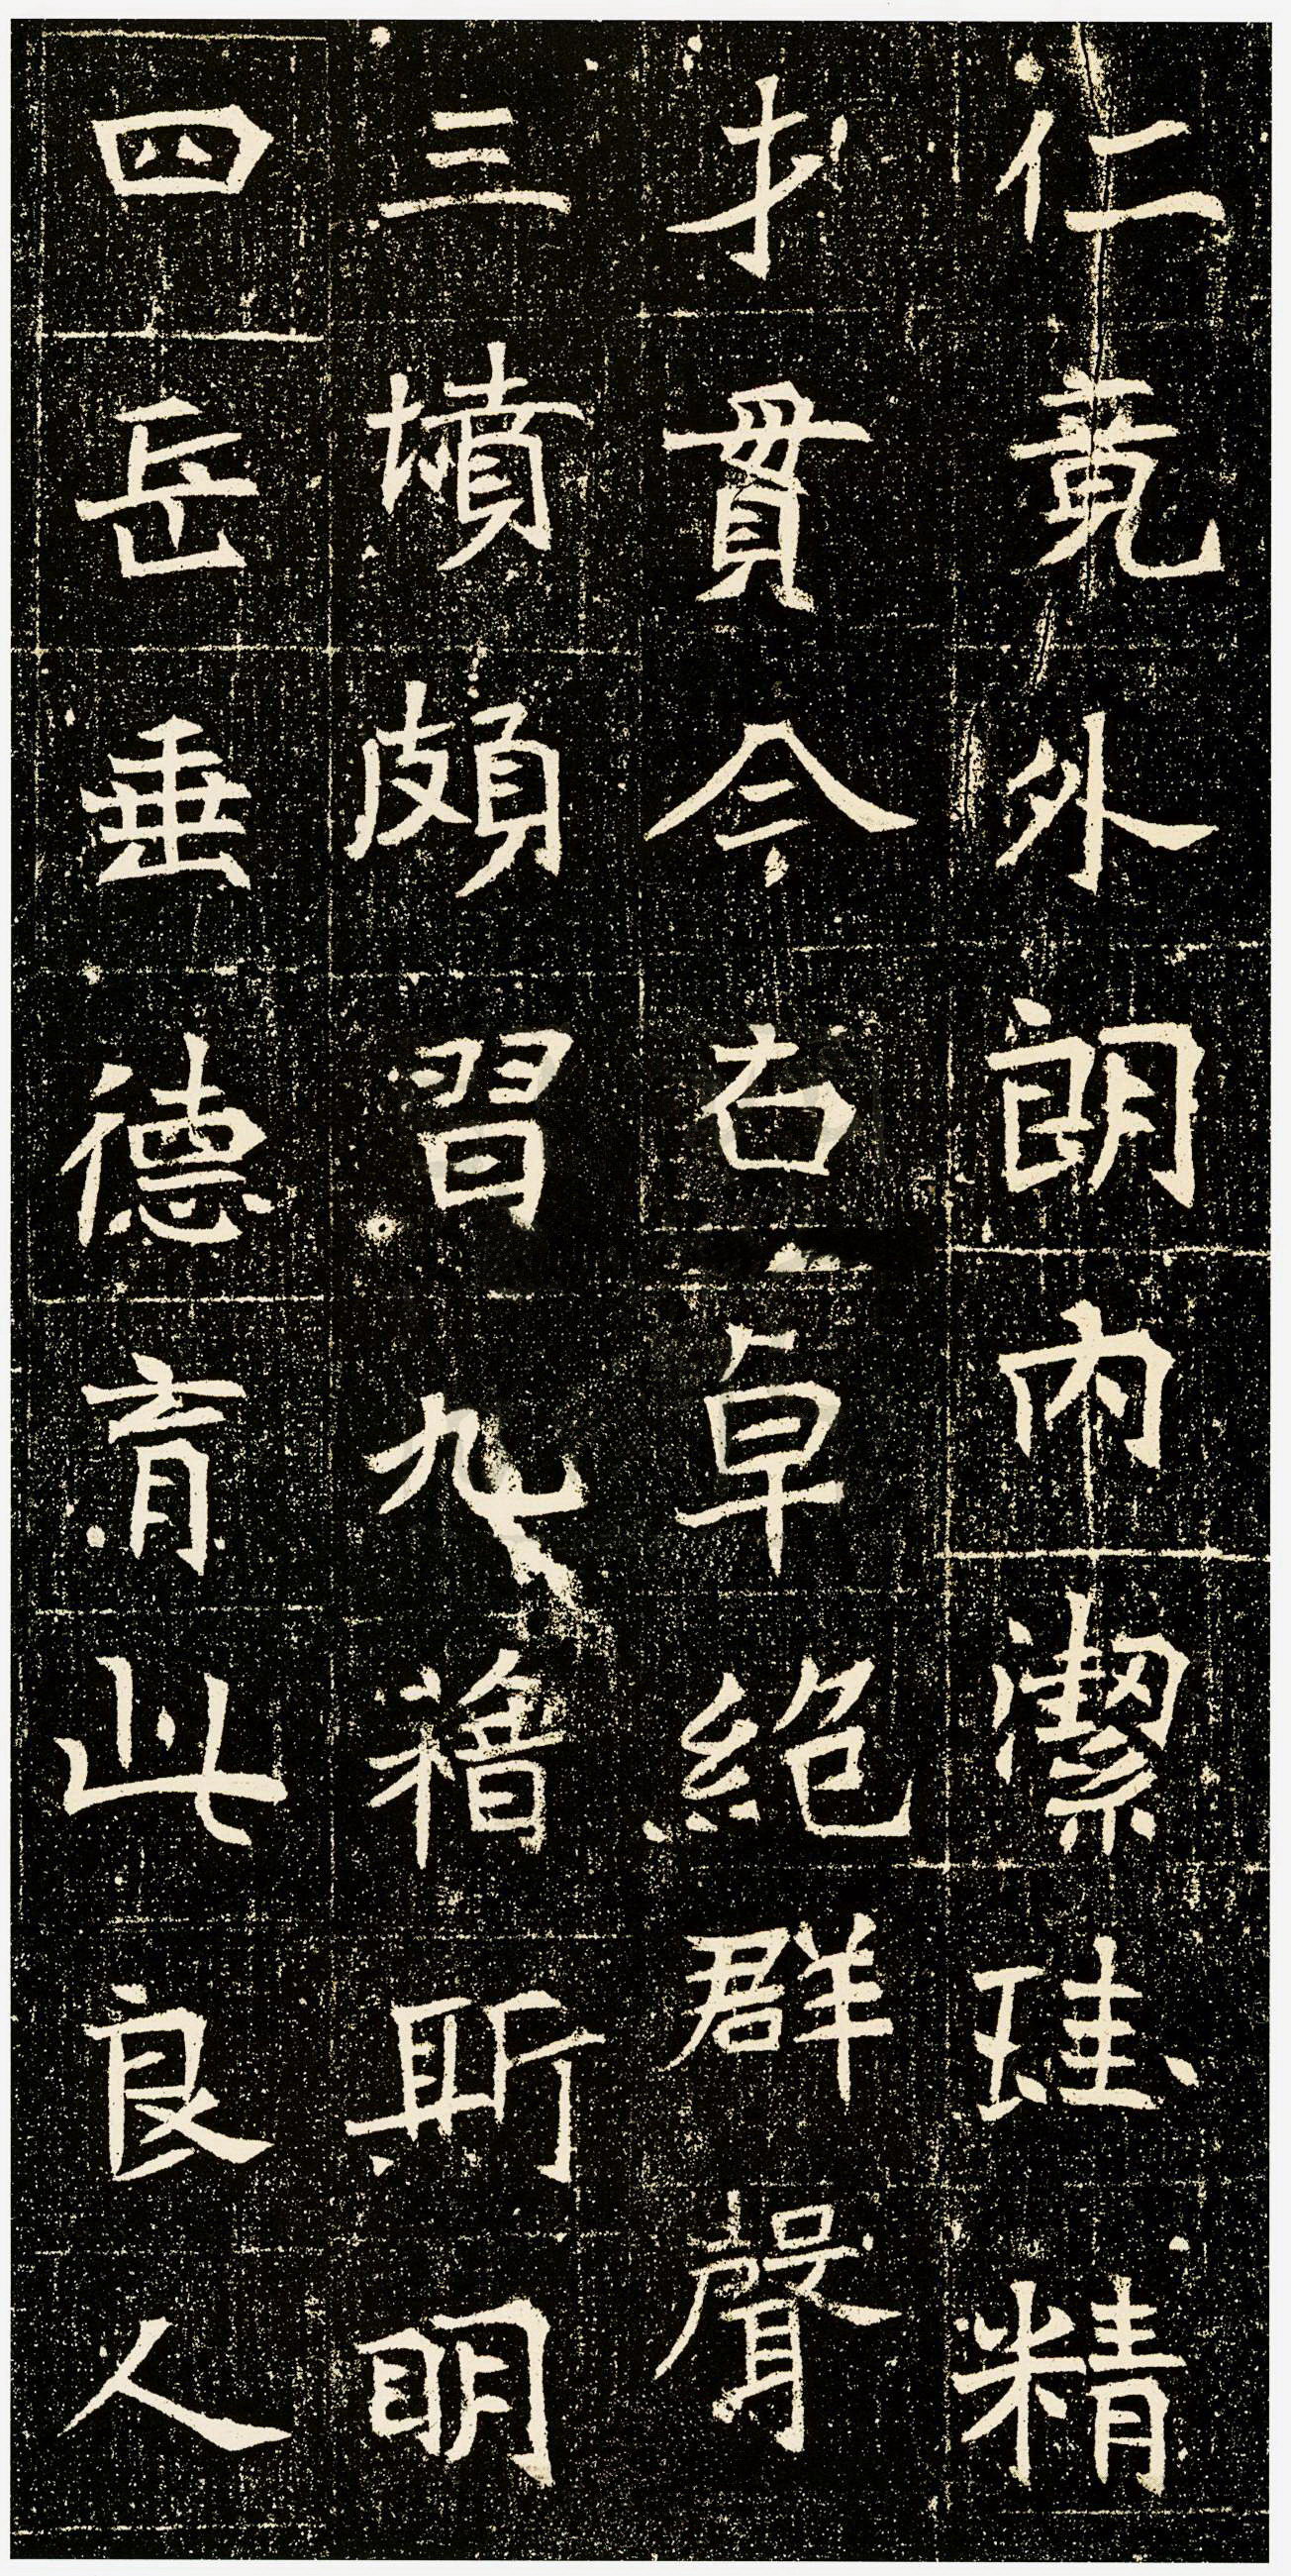 仁竟外朗內潔珪精
才貫今右卓絕群聲
三墳頗習九稽斯明
四岳垂德育此良人